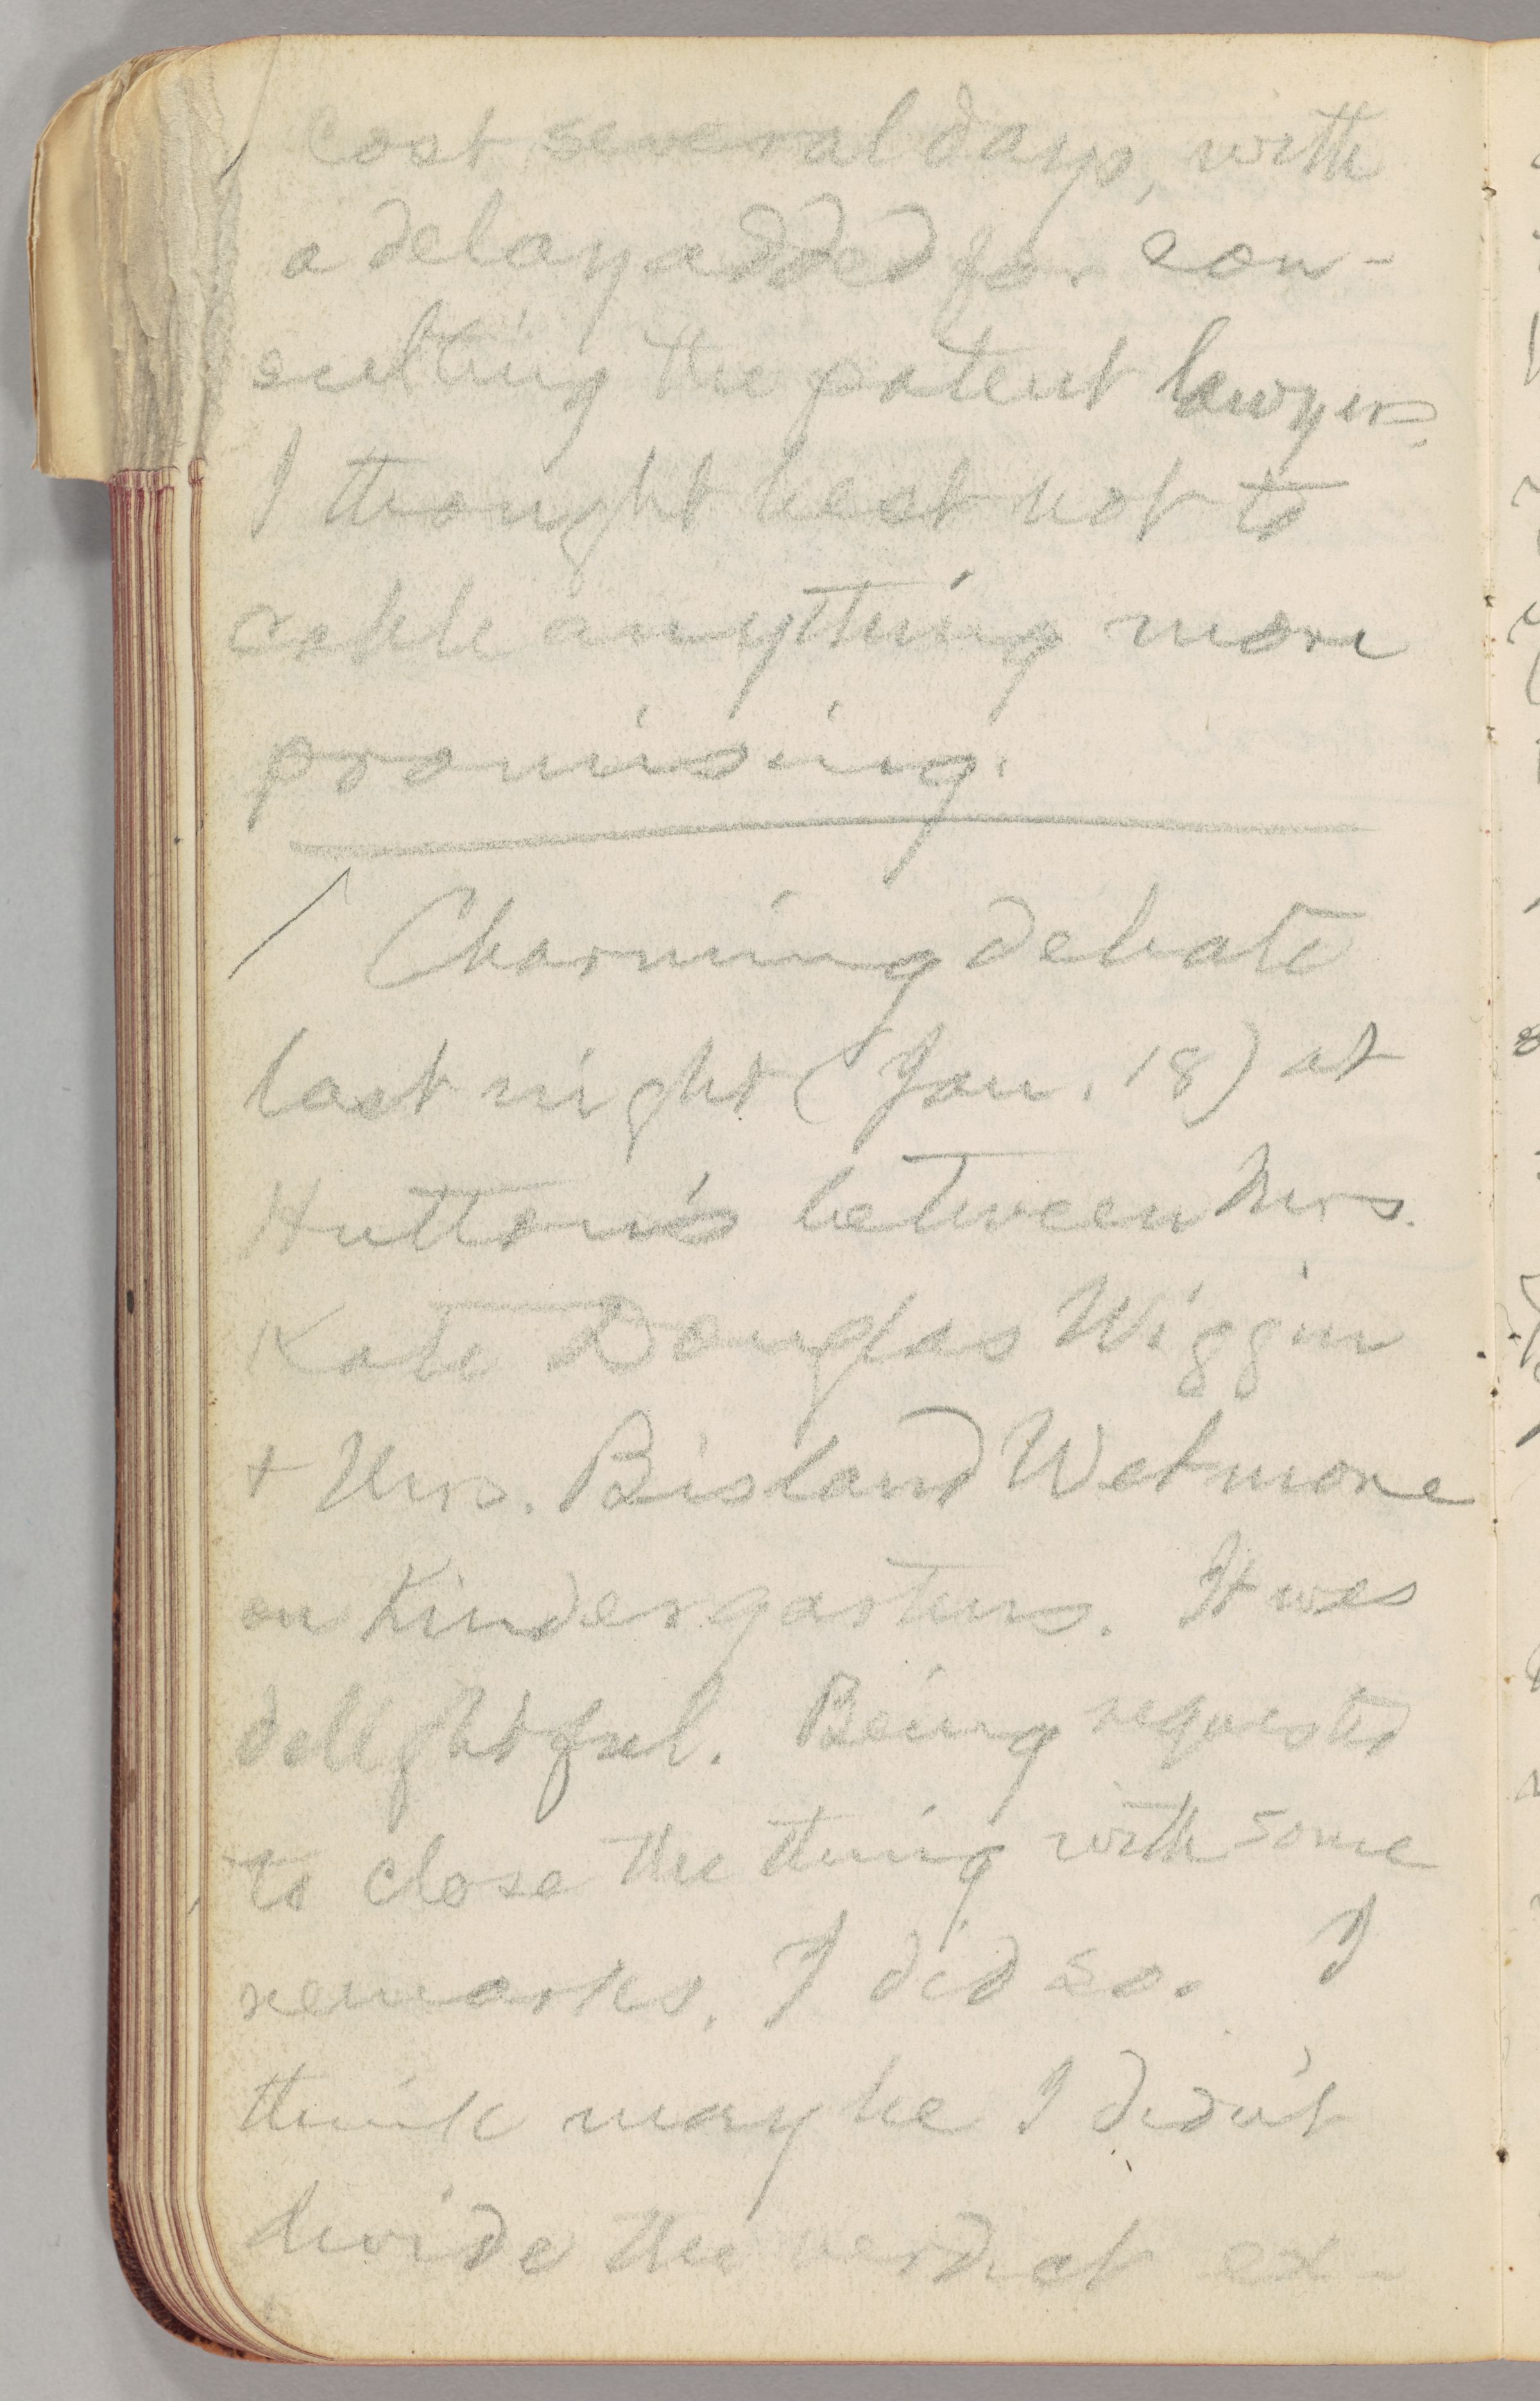 cost several days, with
a delay added for con-
sulting the patent lawyers.
I thought best not to
cable anything more
promising.
Charming debate
last night (Jan. 18) at
Hutton's between Mrs.
Kate Douglas Wiggin
+ Mrs. Bisland Wetmore
on Kindergartens. It was
delightful. Being requested
to close the thing with some
remarks, I did so. I
think maybe I didn't
divide the verdict ex-